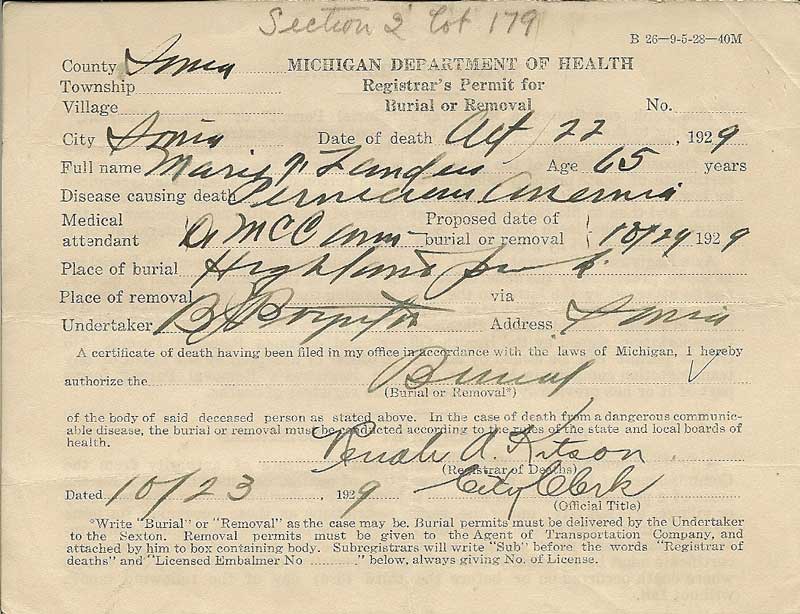 Section 2 Lot 179
B 26—9-5-28—40M
County Ionia MICHIGAN DEPARTMENT OF HEALTH
Township Registrar's Permit for
Village Burial or Removal No.
City Ionia Date of death Oct 22, 1929
Full name Age 65 years
Disease causing death Pernicious Anemia
Medical attendant Dr McCann Proposed date of burial or removal 10/24 1929
Place of burial Highland Park
Place of removal via
Undertaker B Boynton Address Ionia
A certificate of death having been filed in my office in accordance with the laws of Michigan, I hereby
authorize the Burial
(Burial or Removal*)
of the body of said deceased person as stated above. In the case of death from a dangerous communic-
able disease, the burial or removal must be conducted according to the rules of the state and local boards of
health.
A. Kitson
(Registrar of Deaths)
Dated 10/23, 1929 City Clerk
(Official Title)
*Write "Burial" or "Removal" as the case may be. Burial permits must be delivered by the Undertaker
to the Sexton. Removal permits must be given to the Agent of Transportation Company, and
attached by him to box containing body. Subregistrars will write "Sub" before the words "Registrar of
deaths" and "Licensed Embalmer No .........." below, always giving No. of License.